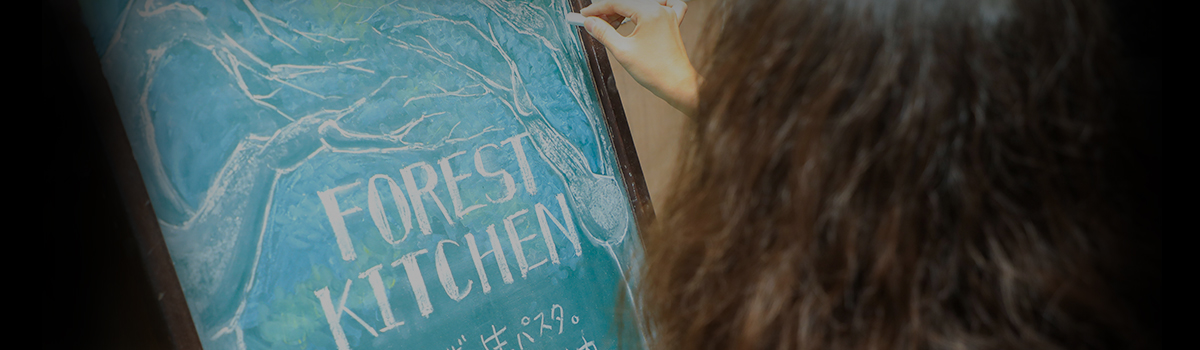 FOREST
KITCHEN
生パスタ。